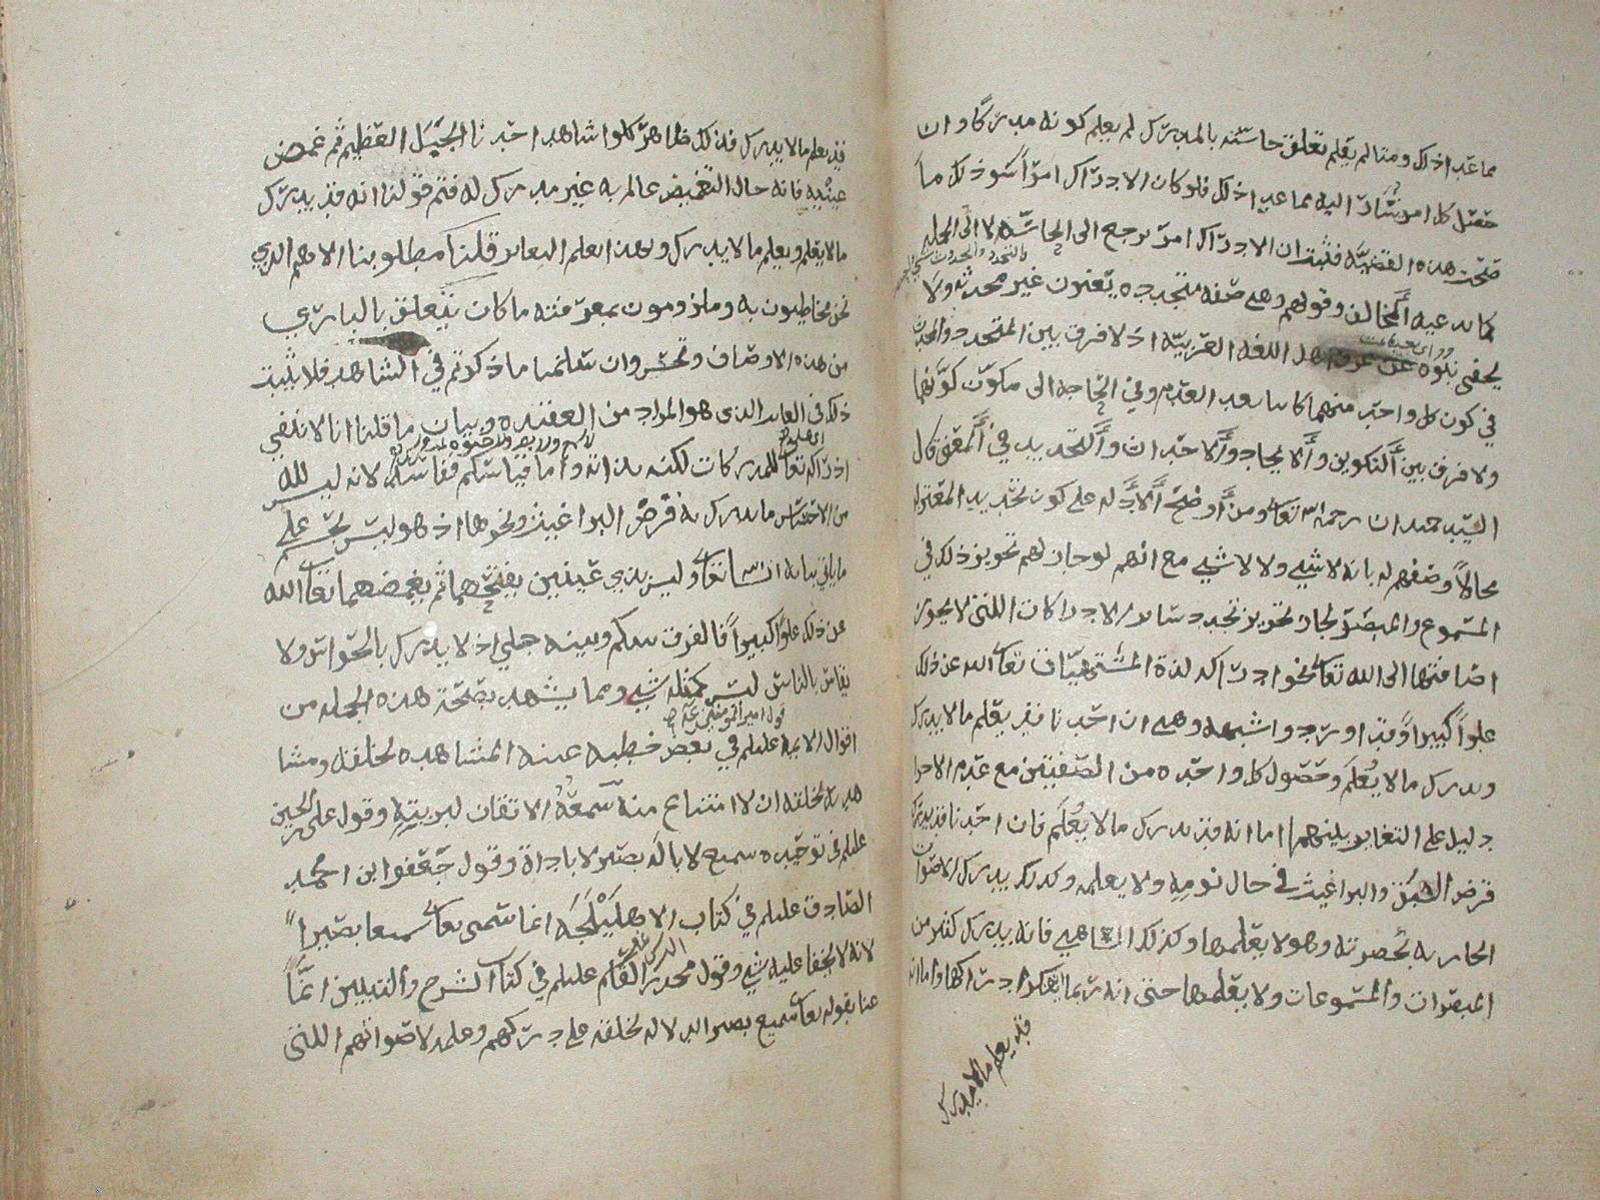 مما عدا ذلك ومتا لم يعلم تعلق حاسته بالمدرك لم يعلم كونه مدركا وان
حصل كل امر يشار اليه مما عدا ذلك فلو كان الادراك امرا سوى ذلك ما
صحت هذه القضيه فثبت ان الادراك امر يرجع الى الحاسه لا الى الجمله
كما يدعيه المخالف وقولهم وهي صفه متجدده يعنون غير محدثه ولا
يخفى نبوه عن عرف اهل اللغه العربيه اذ لا فرق بين المتجدد والمحدث
في كون كل واحد منهما كاينا بعد العدم وفي الحاجه الى مكون كونها
ولا فرق بين التكوين والايجاد والاحداث والتجديد في المعنى قال
السيد حميدان رحمه الله تعالى ومن اوضح الادله على كون تجديد المعتزله
محالا وصفهم له بانه لا شيء ولا لا شيء مع انهم لو جاز لهم تجويز ذلك في
المسموع والمبصر لجاز تجويز تجدد ساير الادراكات اللتي لا يجوز
اضافتها الى الله تعالى نحو ادراك لذة المشتهيات تعالى الله عن ذلك
علوا كبيرا وقد اورد واشبهه وهي ان احدنا قد يعلم ما لا يدرك
ويدرك ما لا يعلم وحصول كل واحده من الصفتين مع عدم الاخرا
دليل على التغاير بينهما اما انه قد يدرك ما لا يعلم فان احدنا قد يدرك
قرص البق والبراغيث في حال نومه ولا يعلمه وكذلك يدرك الاصوات
الحاربه بحضرته وهو لا يعلمها وكذلك الساهي فانه يدرك كثير من
المبصرات والمسموعات ولا يعلمها حتى انه ربما ينكر ادراكها واما انه
قد يعلم ما لا يدرك
قد يعلم ما لا يدرك فذلك ظاهر كلوا شاهد احدنا الجبل العظيم ثم غمض
عينيه فانه حال التغميض عالم به غير مدرك له فتم قولنا انه قد يدرك
ما لا يعلم ويعلم ما لا يدرك وهذا يعلم التغاير قلنا مطلوبنا الاهم الذي
نحن مخاطبون به وملزومون بمعرفته ما كان يتعلق بالباري
من هذه الاوصاف ونحن وان سلمنا ما ذكرتم في الشاهد فلا يثبت
ذلك في الغايب الذي هو المراد من العقيده وبيان ما قلنا انا لا ننفي
ادراكه تعالى للمدركات لكنه بذاته واما قياسكم ففاسد لانه ليس لله
من الاحساس ما يدرك به قرص البراغيث ونحوها اذ هو ليس بحي على
ما ياتي بيانه ان شا الله تعالى وليس بذي عينين يفتحهما ثم يغمضهما تعالى الله
عن ذلك علوا كبيرا فالفرق بينكم وبينه جلي اذ لا يدرك بالحواس ولا
يقاس بالناس ليس كمثله شيء ومما يشهد بصحة هذه الجمله من
اقوال الايمه عليلم قول امير المؤمنين في بعض خطبه عينه المشاهده لخلقه ومشا
هدته لخلقه ان لا امتناع منه سمعه الاتقان لبريته وقول علي بن الحسين
عليلم في توحيده سميع لا بآله بصير لا باداة وقول جعفر ابن محمد
الصادق عليلم في كتاب الاهليلجه انما سمي تعالى سميعا بصيرا
لانه لا يخفا عليه شيء وقول محمد بن القاسم عليلم في كتاب الشرح والتبيين انما
عنا بقوله تعالى سميع بصير الدلاله لخلقه على دركهم وعلمه لاصواتهم اللتي